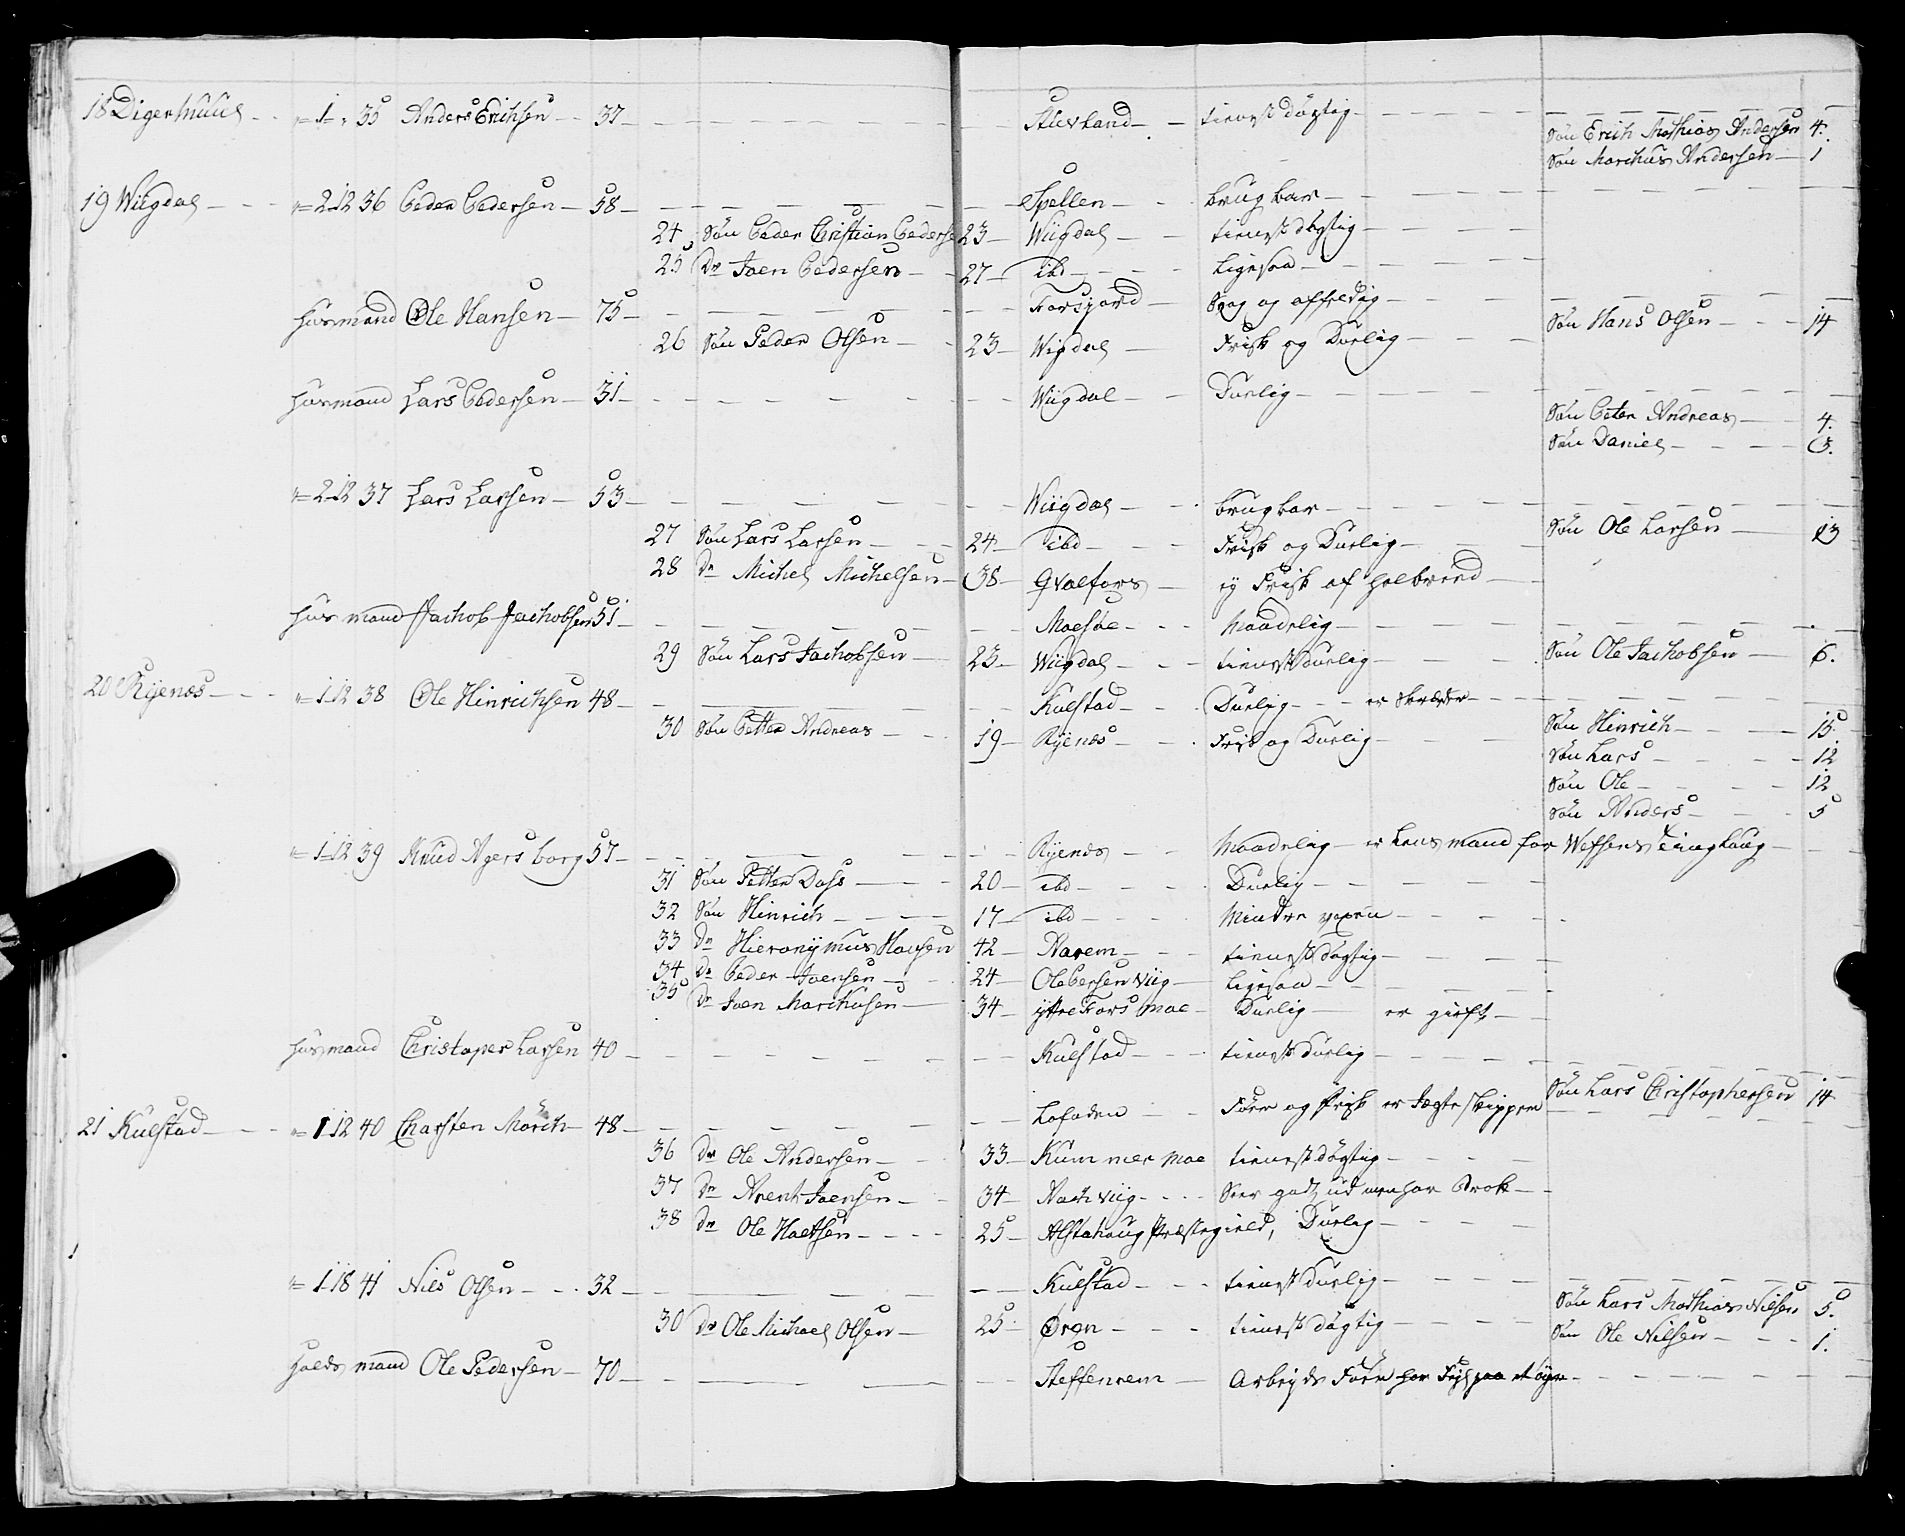 18 Digermuul - - „ 1 - „ 35 Anders Erichsen - - 37 - - - Alevland - - tienst dögtig - - -
Søn Erich Mathias Andersen 4.
Søn Marchus Andersen - 1
19 Wiigdal - - - „ 2 12 36 Peder Pedersen - 58 - - - Spellen - - brugbar - -
24 Søn Peder Cristian Peders 23 - Wiigdal - - tienst dögtig - - -
25 Dr Joen Pedersen - - 27 - ibd - - - ligesaa - - -
Huusmand Ole Hansen - 75 - - - Forsjord - Svag og affeldig - - -
Søn Hans Olsen - - - 14
26 Søn Peder Olsen - - 23 - Wigdal - Frisk og Durlig - - -
Huusmand Lars Pedersen - 31 - - - Wiigdal - - Durlig - - -
Søn Peter Andreas - - 4.
Søn Daniel - - - 3.
„ 2 12 37 Lars Larsen - 53 - - - Wiigdal - - brugbar - - -
Søn Ole Larsen - 13
27 Søn Lars Larsen - - - 24 - ibd - - - Frisk og Durlig - - -
28 Dr Michel Michelsen - 38 - Qvalfors - ej Frisk af helbrend - -
Huusmand Jachob Jachobsen 51 - - - Moesøe - - - Maadelig - - -
29 Søn Lars Jachobsen - 23 - Wiigdal - - - tienst Durlig - - - Søn Ole Jachobsen - 6.
20 Rÿenæs - - - „ 1 12 38 Ole Hinrichsen 48 - - - Kulstad - - - Durlig - - - er Skræder - - -
30 Søn Petter Andreas - - 19 - Rÿenæs - - - Frisk og Durlig - - - Søn Hinrich - - - 15
Søn Lars - - - 12
Søn Ole - - - 12
Søn Anders - - - 5
„ 1 12 39 Knud Agersborg 57 - - - Rÿenæs - - Maadelig - er Lensmand for Wefsens Tinghaug - -
31 Søn Petter Dass - - - 20 - ibd - - - Durlig - - -
32 Søn Hinrich - - - 17 - ibd - - - Mindre voxen - - -
33 Dr Hieronÿmus Hansen 42 - Narem - - - tienst Dögtig - - -
34 Dr Peder Joensen - - 24 - Ole Persen Viig - ligesaa - - -
35 Dr Joen Marchusen - 34 - ÿtre Fors moe - Durlig - er gieft - -
Huusmand Christoper Larsen 40 - - - Kulstad - - - tienst Durlig - - -
Søn Lars Christophersen 14
21 Kulstad - - - „ 1 12 40 Charsten Mörch - 48 - - - Lofoden - - Före og Frisk er Jægte skipper
36 Dr Ole Andersen - 33 - Kummer moe tienst dögtig - - -
37 Dr Arent Joensen - - 34 - Nachviig - - - Seer godt ud men har Brok - -
38 Dr Ole Haetsen - - - 25 - Alstahoug Præstegield, Durlig - - -
„ 1 18 41 Nils Olsen - - - 32 - - - Kulstad - - - tienst Durlig - - -
Søn Lars Mathias Nilsen 5.
30 Dr Ole Michael Olsen - 25 - Øren - - - tienst dögtig - - -
Søn Ole Nilsen - - - 1.
Holds mand Ole Pedersen - 70 - - - Steffenrem - Arbejds Före har Fejl paa et öje - - -